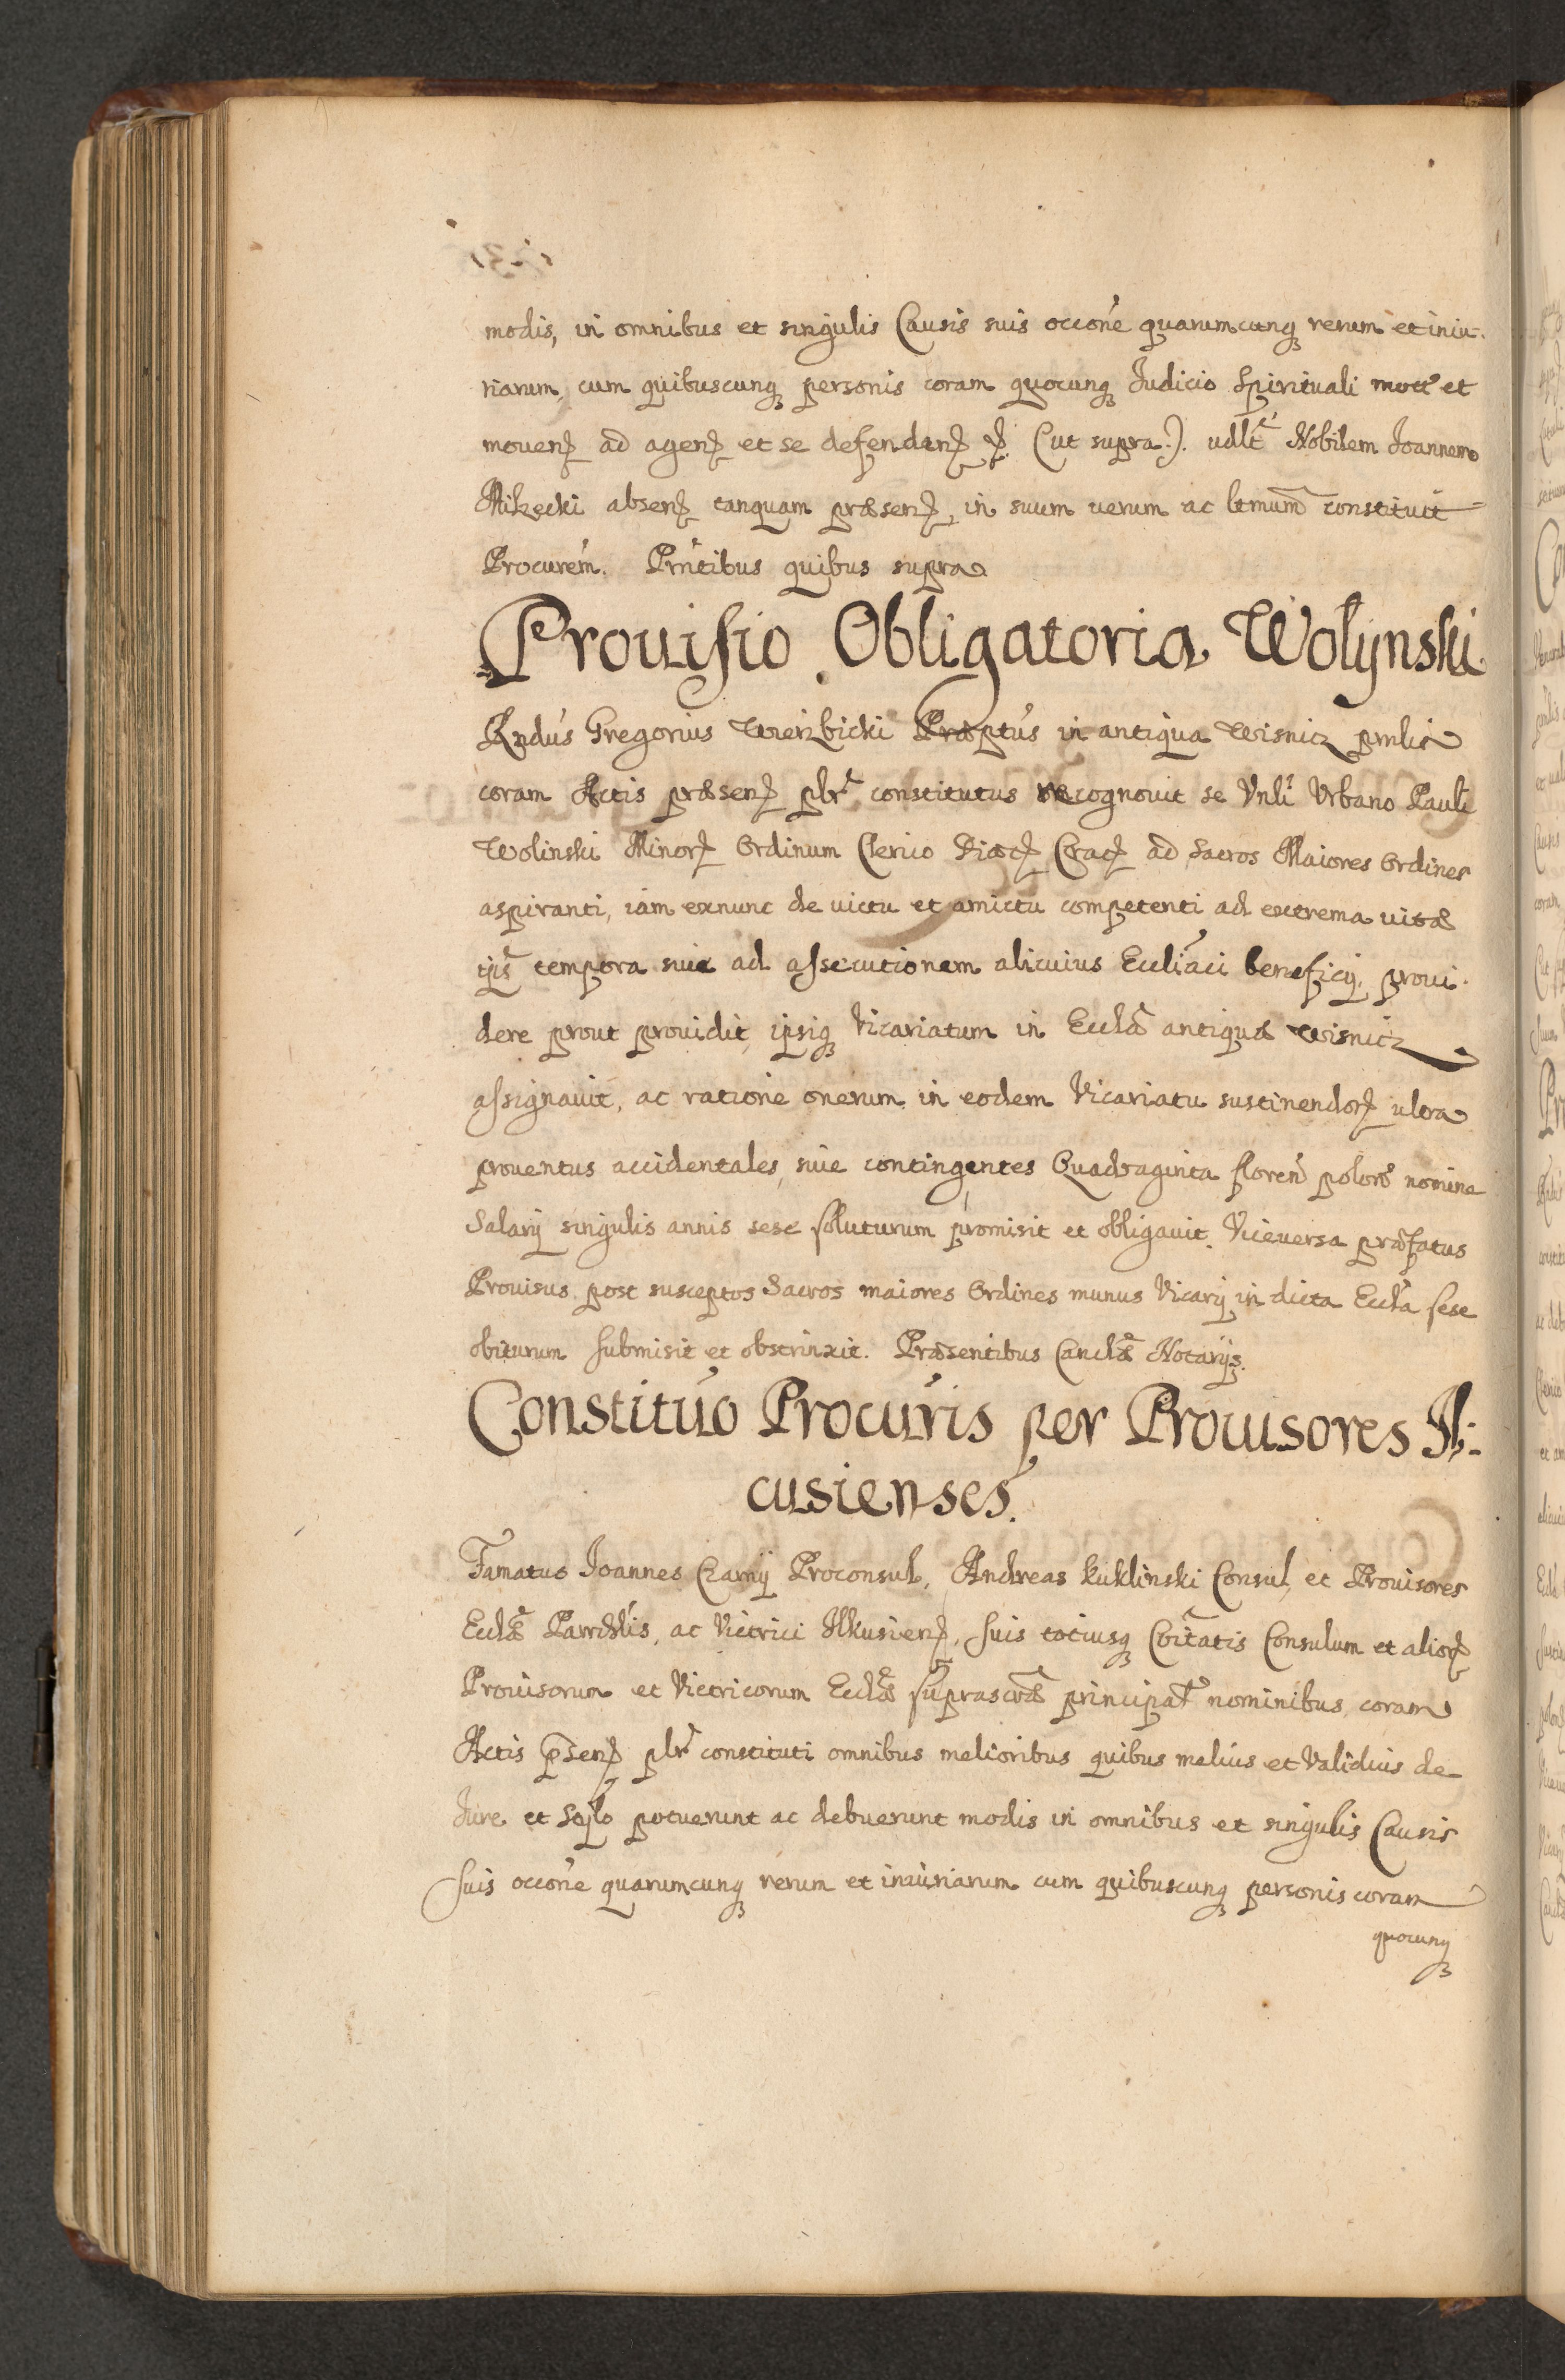 modis, in omnibus et singulis Causis suis occone quarumcunq rerum et iniu-
riarum, cum quibuscunq personis coram quocunq Judicio Spirituali mott et
mouen ad agen et se defenden (ut supra). udlt Nobilem Joannem
absen tanquam præsen, in suum uerum ac ltmum constituit
Procurem. Pntibus quibus supra
Prouisio Obligatoria Wolynski
Rndus Gregorius Wierzbicki Præptus in antiqua Wisnicz pnlis
coram Actis præsen plr constitutus recognouit se Vnli Vrbano Pauli
Wolinski Minor Ordinum Clerico Diæc Crac ad Sacros Maiores Ordines
aspiranti, iam exnunc de uictu et amictu competenti ad extrema uitæ
ijs tempora siue ad assecutionem alicuius Eccliaci beneficij, proui-
dere prout prouidit, ipsiq Vicariatum in Eccla antiquæ Wisnicz
assignauit, ac ratione onerum in eodem Vicariatu sustinendor ultra
prouentus accidentales, siue contingentes Quadraginta floren polon nomine
Salarij singulis annis sese soluturum promisit et obligauit. Viceuersa præfatus
Prouisus post susceptos Sacros maiores Ordines munus Vicarij in dicta Eccla sese
obiturum submisit et obstrinxit. Præsentibus Canclæ Notarijs.
Constituo Procuris per Prouisores Il-
cusienses.
Famatus Joannes Czarny Proconsul, Andreas Kuklinski Consul, et Prouisores
Ecclæ Parrchlis, ac Vietrici Ilkusien, suis totiusq Coitatis Consulum et alior
Prouisorum et Vietricorum Ecclæ suprascræ principat nominibus, coram
Actis psen plr constituti omnibus melioribus quibus melius et Validius de
Jure et potuerunt ac debuerunt modis in omnibus et singulis Causis
suis occone quarumcunq rerum et iniuriarum cum quibuscunq personis coram
quocunq